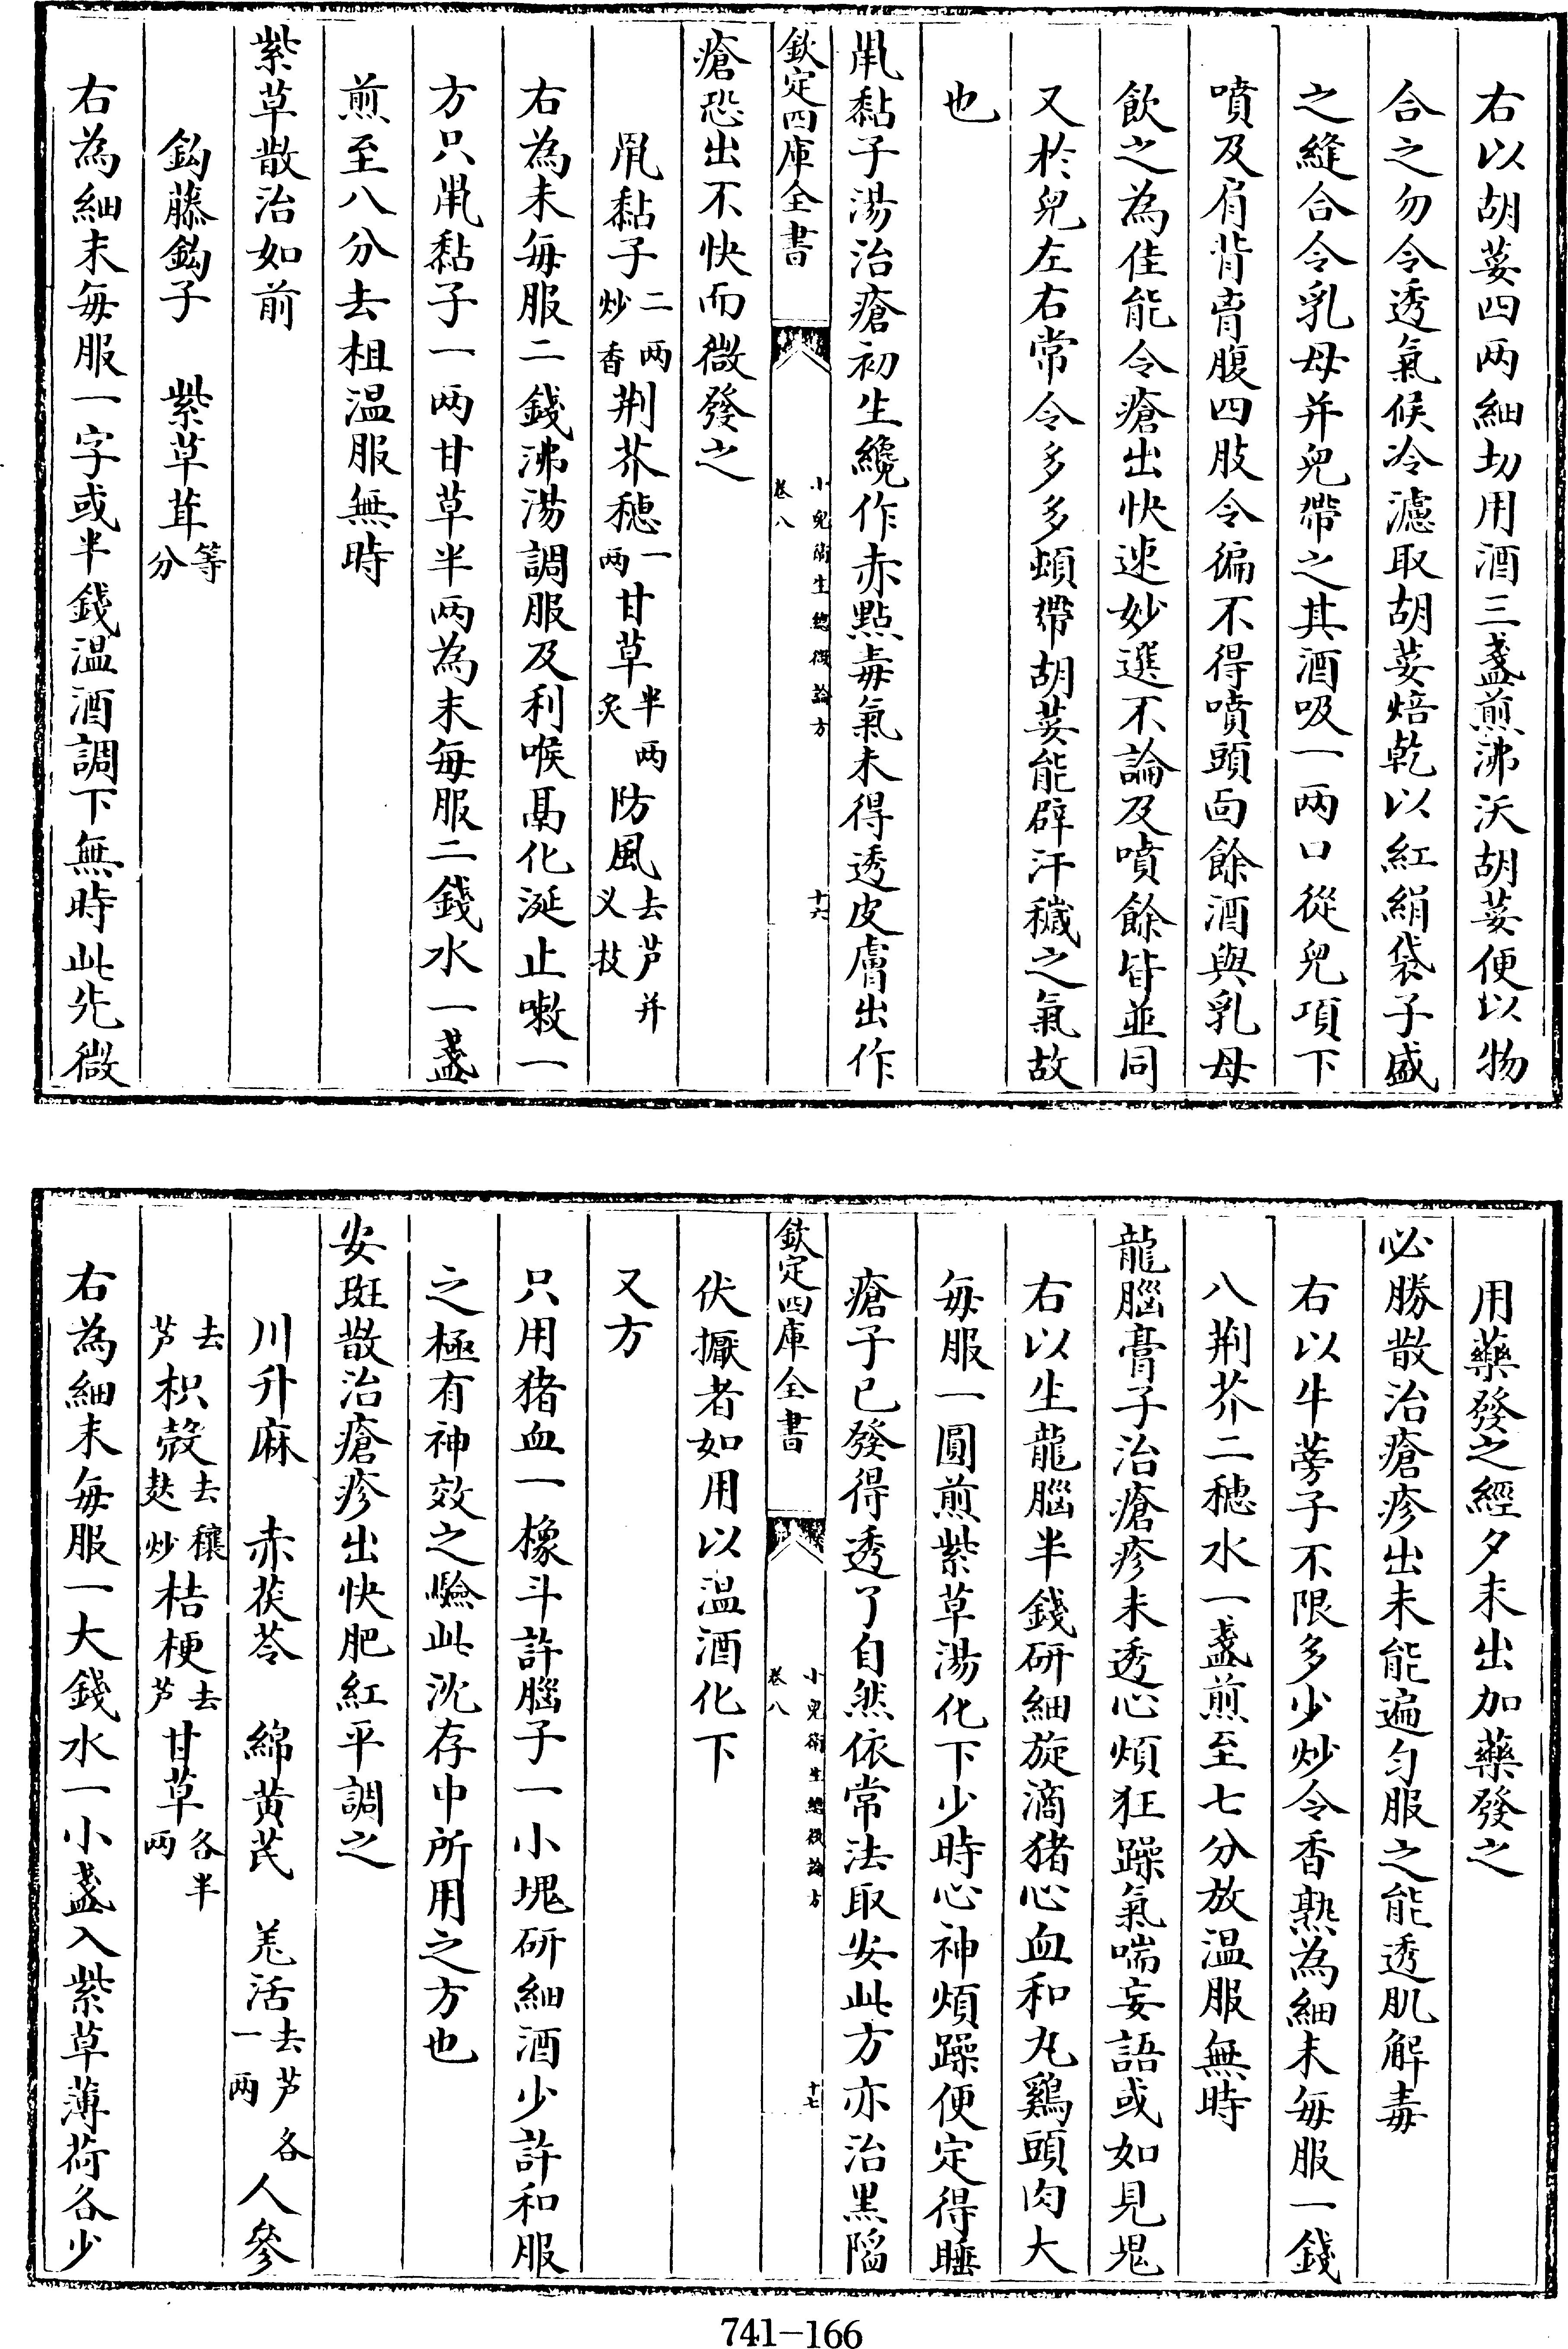 右以胡荽四两細切用酒三盞煎沸沃胡荽便以物
合之勿令透氣候冷濾取胡荽焙乾以紅絹袋子盛
之縫合令乳母并兒帶之其酒吸一兩口從兒項下
噴及肩背膂腹四肢令徧不得噴頭面餘酒與乳母
飲之為佳能令瘡出快速妙選不論及噴餘皆並同
又於兒左右常令多多頻帶胡荽能辟汗穢之氣故
也
鼡黏子湯治瘡初生纔作赤點毒氣未得透皮膚出作
欽定四庫全書 小兒衛生總微論方 卷八 十六
瘡恐出不快而微發之
鼡黏子二两炒香荆芥穂一两甘草半两炙防風去芦并义枝
右為末毎服二錢沸湯調服及利喉鬲化涎止嗽一
方只鼡黏子一两甘草半两為末毎服二錢水一盞
煎至八分去柤温服無時
紫草散治如前
鈎藤鈎子 紫草茸等分
右為細末毎服一字或半錢温酒調下無時此先微
用藥發之經夕未出加藥發之
必勝散治瘡疹出未能遍匀服之能透肌解毒
右以牛蒡子不限多少炒令香熟為細末毎服一錢
八荆芥二穂水一盞煎至七分放温服無時
龍腦膏子治瘡疹未透心煩狂躁氣喘妄語或如見鬼
右以生龍腦半錢研細旋滴猪心血和丸鷄頭肉大
毎服一圓煎紫草湯化下少時心神煩躁便定得睡
瘡子已發得透了自然依常法取安此方亦治黑陷
欽定四庫全書 小兒衛生總微論方 卷八 十七
伏㩲者如用以温酒化下
又方
只用猪血一橡斗許腦子一小塊研細酒少許和服
之極有神效之驗此沈存中所用之方也
安斑散治瘡疹出快肥紅平調之
川升麻 赤茯苓 綿黄芪 羗活去芦各一两 人參
去芦枳殻去穰麩炒桔梗去芦甘草各半两
右為細末毎服一大錢水一小盞入紫草薄荷各少
741-166